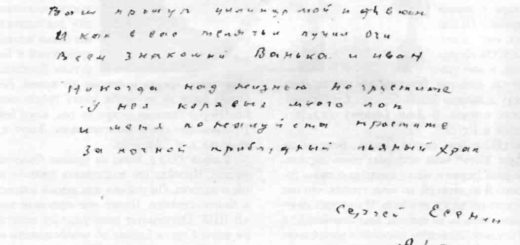 Вот прыгун цилиндр мой и диван
И как в вас телячьи пучил очи
Всем знакомый Ванька и Иван
Никогда над жизнью не грустите
У нея корявых много лап
И меня пожалуйста простите
За ночной приблудный пьяный храп
Сергей Есенин